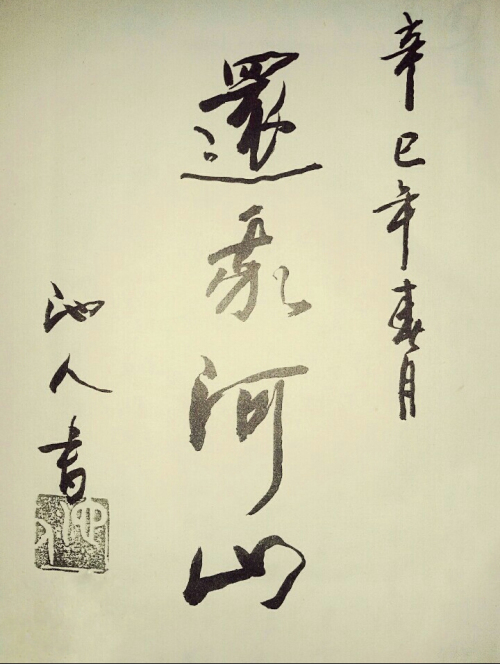 辛巳年春月
還我河山
池人書